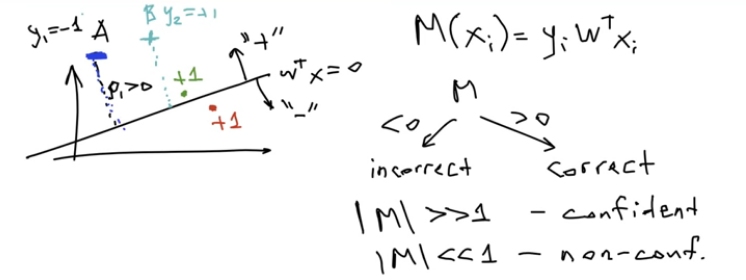 y₁=-1 A
B y₂=+1
"+"
ρ₁>0
+1
wᵀx=0
"-"
+1
M(xᵢ)= yᵢ wᵀxᵢ
M
<0 >0
incorrect correct
|M| >>1 - confident
|M| <<1 - non-conf.